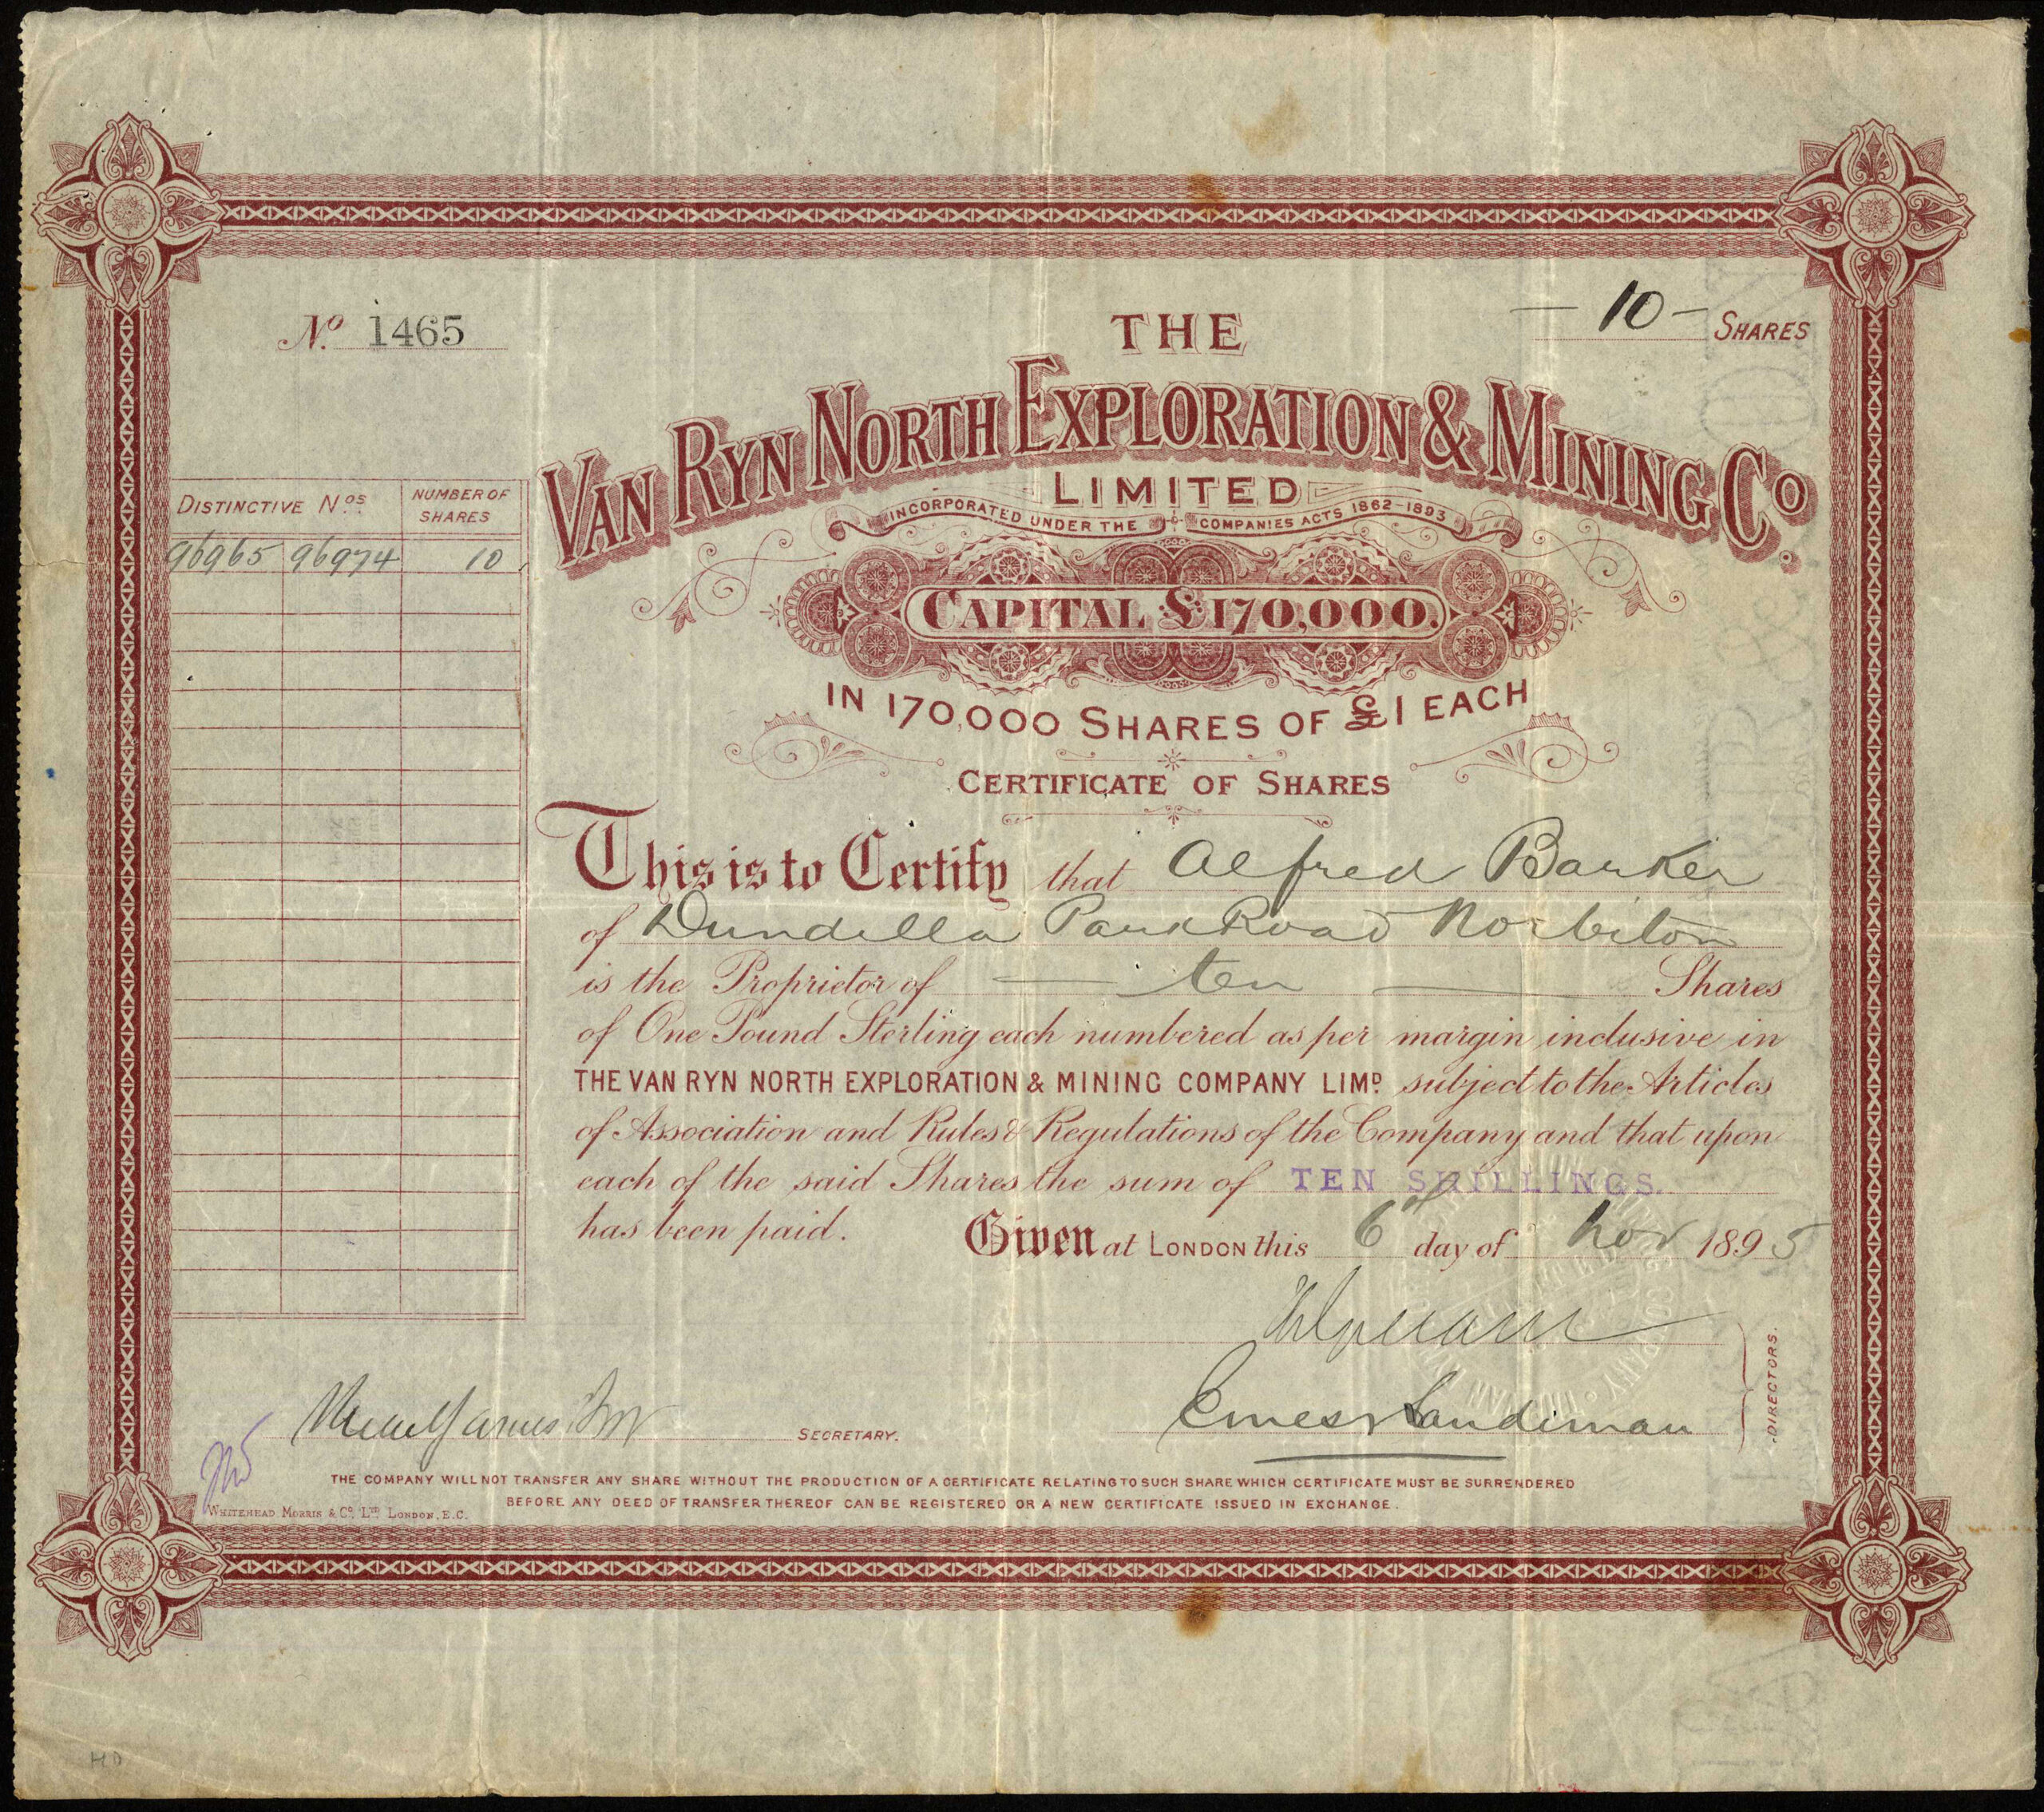 No. 1465
— 10 — SHARES
THE
VAN RYN NORTH EXPLORATION & MINING Co.
LIMITED
INCORPORATED UNDER THE COMPANIES ACTS 1862-1893
CAPITAL £170,000.
IN 170,000 SHARES OF £1 EACH
CERTIFICATE OF SHARES
DISTINCTIVE Nos. NUMBER OF SHARES
96965 96974 10
This is to Certify that Alfred Barker
of Dundella Park Road Norbiton
is the Proprietor of — ten — Shares
of One Pound Sterling each numbered as per margin inclusive in
THE VAN RYN NORTH EXPLORATION & MINING COMPANY LIMD. subject to the Articles
of Association and Rules & Regulations of the Company and that upon
each of the said Shares the sum of TEN SHILLINGS.
has been paid. Given at LONDON this 6th day of Nov 1895
Ernest Sandiman
DIRECTORS.
SECRETARY.
THE COMPANY WILL NOT TRANSFER ANY SHARE WITHOUT THE PRODUCTION OF A CERTIFICATE RELATING TO SUCH SHARE WHICH CERTIFICATE MUST BE SURRENDERED
BEFORE ANY DEED OF TRANSFER THEREOF CAN BE REGISTERED OR A NEW CERTIFICATE ISSUED IN EXCHANGE.
WHITEHEAD MORRIS & Co. LTD. LONDON, E.C.
HD